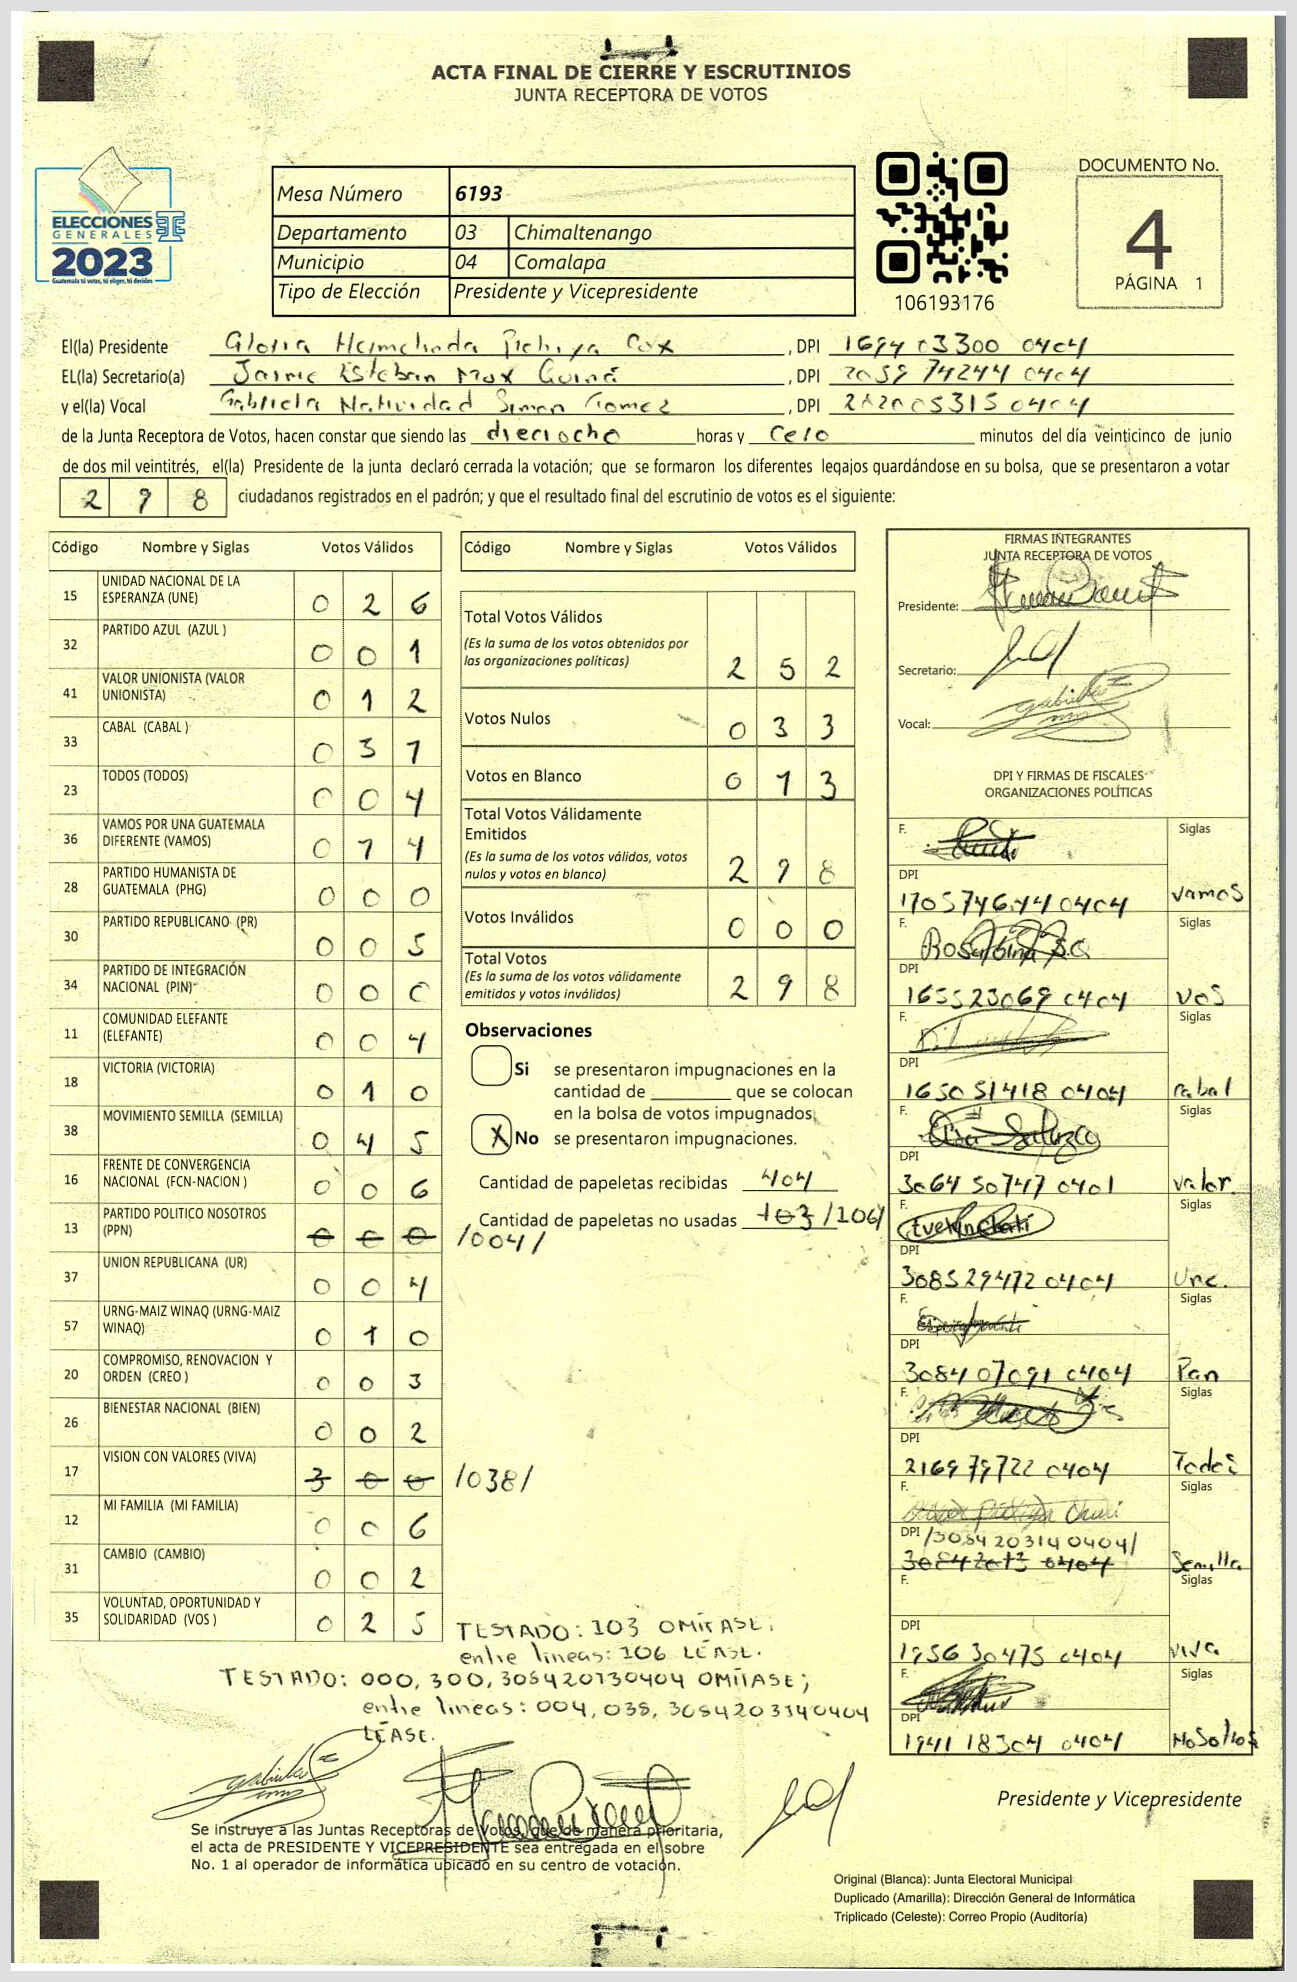 ACTA FINAL DE CIERRE Y ESCRUTINIOS
JUNTA RECEPTORA DE VOTOS
ELECCIONES
GENERALES
2023
Guatemala tú votas, tú eliges, tú decides
Mesa Número 6193
Departamento 03 Chimaltenango
Municipio 04 Comalapa
Tipo de Elección Presidente y Vicepresidente
106193176
DOCUMENTO No.
4
PÁGINA 1
El(la) Presidente Gloria Hermelinda Pichiya Cox , DPI 1694 03300 0404
EL(la) Secretario(a) Jaime Esteban Mox , DPI 2059 74244 0404
y el(la) Vocal Gabriela Natividad Simon Gomez , DPI 282005315 0404
de la Junta Receptora de Votos, hacen constar que siendo las dieciocho horas y cero minutos del día veinticinco de junio
de dos mil veintitrés, el(la) Presidente de la junta declaró cerrada la votación; que se formaron los diferentes legajos guardándose en su bolsa, que se presentaron a votar
298 ciudadanos registrados en el padrón; y que el resultado final del escrutinio de votos es el siguiente:
Código Nombre y Siglas Votos Válidos
15 UNIDAD NACIONAL DE LA ESPERANZA (UNE) 0 2 6
32 PARTIDO AZUL (AZUL ) 0 0 1
41 VALOR UNIONISTA (VALOR UNIONISTA) 0 1 2
33 CABAL (CABAL ) 0 3 7
23 TODOS (TODOS) 0 0 4
36 VAMOS POR UNA GUATEMALA DIFERENTE (VAMOS) 0 1 4
28 PARTIDO HUMANISTA DE GUATEMALA (PHG) 0 0 0
30 PARTIDO REPUBLICANO (PR) 0 0 5
34 PARTIDO DE INTEGRACIÓN NACIONAL (PIN) 0 0 0
11 COMUNIDAD ELEFANTE (ELEFANTE) 0 0 4
18 VICTORIA (VICTORIA) 0 1 0
38 MOVIMIENTO SEMILLA (SEMILLA) 0 4 5
16 FRENTE DE CONVERGENCIA NACIONAL (FCN-NACION ) 0 0 6
13 PARTIDO POLITICO NOSOTROS (PPN) 0 0 0 /004/
37 UNION REPUBLICANA (UR) 0 0 4
57 URNG-MAIZ WINAQ (URNG-MAIZ WINAQ) 0 1 0
20 COMPROMISO, RENOVACION Y ORDEN (CREO ) 0 0 3
26 BIENESTAR NACIONAL (BIEN) 0 0 2
17 VISION CON VALORES (VIVA) 3 0 0 /038/
12 MI FAMILIA (MI FAMILIA) 0 0 6
31 CAMBIO (CAMBIO) 0 0 2
35 VOLUNTAD, OPORTUNIDAD Y SOLIDARIDAD (VOS ) 0 2 5
Código Nombre y Siglas Votos Válidos
Total Votos Válidos
(Es la suma de los votos obtenidos por
las organizaciones políticas) 2 5 2
Votos Nulos 0 3 3
Votos en Blanco 0 1 3
Total Votos Válidamente
Emitidos
(Es la suma de los votos válidos, votos
nulos y votos en blanco) 2 9 8
Votos Inválidos 0 0 0
Total Votos
(Es la suma de los votos válidamente
emitidos y votos inválidos) 2 9 8
Observaciones
Si se presentaron impugnaciones en la
cantidad de ________ que se colocan
en la bolsa de votos impugnados.
X No se presentaron impugnaciones.
Cantidad de papeletas recibidas 404
Cantidad de papeletas no usadas 103 /106/
FIRMAS INTEGRANTES
JUNTA RECEPTORA DE VOTOS
Presidente:
Secretario:
Vocal:
DPI Y FIRMAS DE FISCALES
ORGANIZACIONES POLÍTICAS
F. Siglas
DPI
0404 vamos
F. Siglas
DPI
165523069 0404 VOS
F. Siglas
DPI
1650 51418 0404 cabal
F. Siglas
DPI
3064 50747 0401 valor.
F. Siglas
DPI
3085 29472 0404 Une.
F. Siglas
DPI
3084 07091 0404 Pan
F. Siglas
DPI
2169 79722 0404 Todos
F. Siglas
DPI /3084 20314 0404/
Semilla
F. Siglas
DPI
1956 30475 0404 viva
F. Siglas
DPI
1941 18304 0404 Nosotros
TESTADO: 103 OMITASE.
entre lineas: 106 LÉASE.
TESTADO: 000, 300, 308420130404 OMITASE;
entre lineas: 004, 038, 3084203140404
LÉASE.
Presidente y Vicepresidente
Se instruye a las Juntas Receptoras de Votos, que de manera prioritaria,
el acta de PRESIDENTE Y VICEPRESIDENTE sea entregada en el sobre
No. 1 al operador de informática ubicado en su centro de votación.
Original (Blanca): Junta Electoral Municipal
Duplicado (Amarilla): Dirección General de Informática
Triplicado (Celeste): Correo Propio (Auditoría)